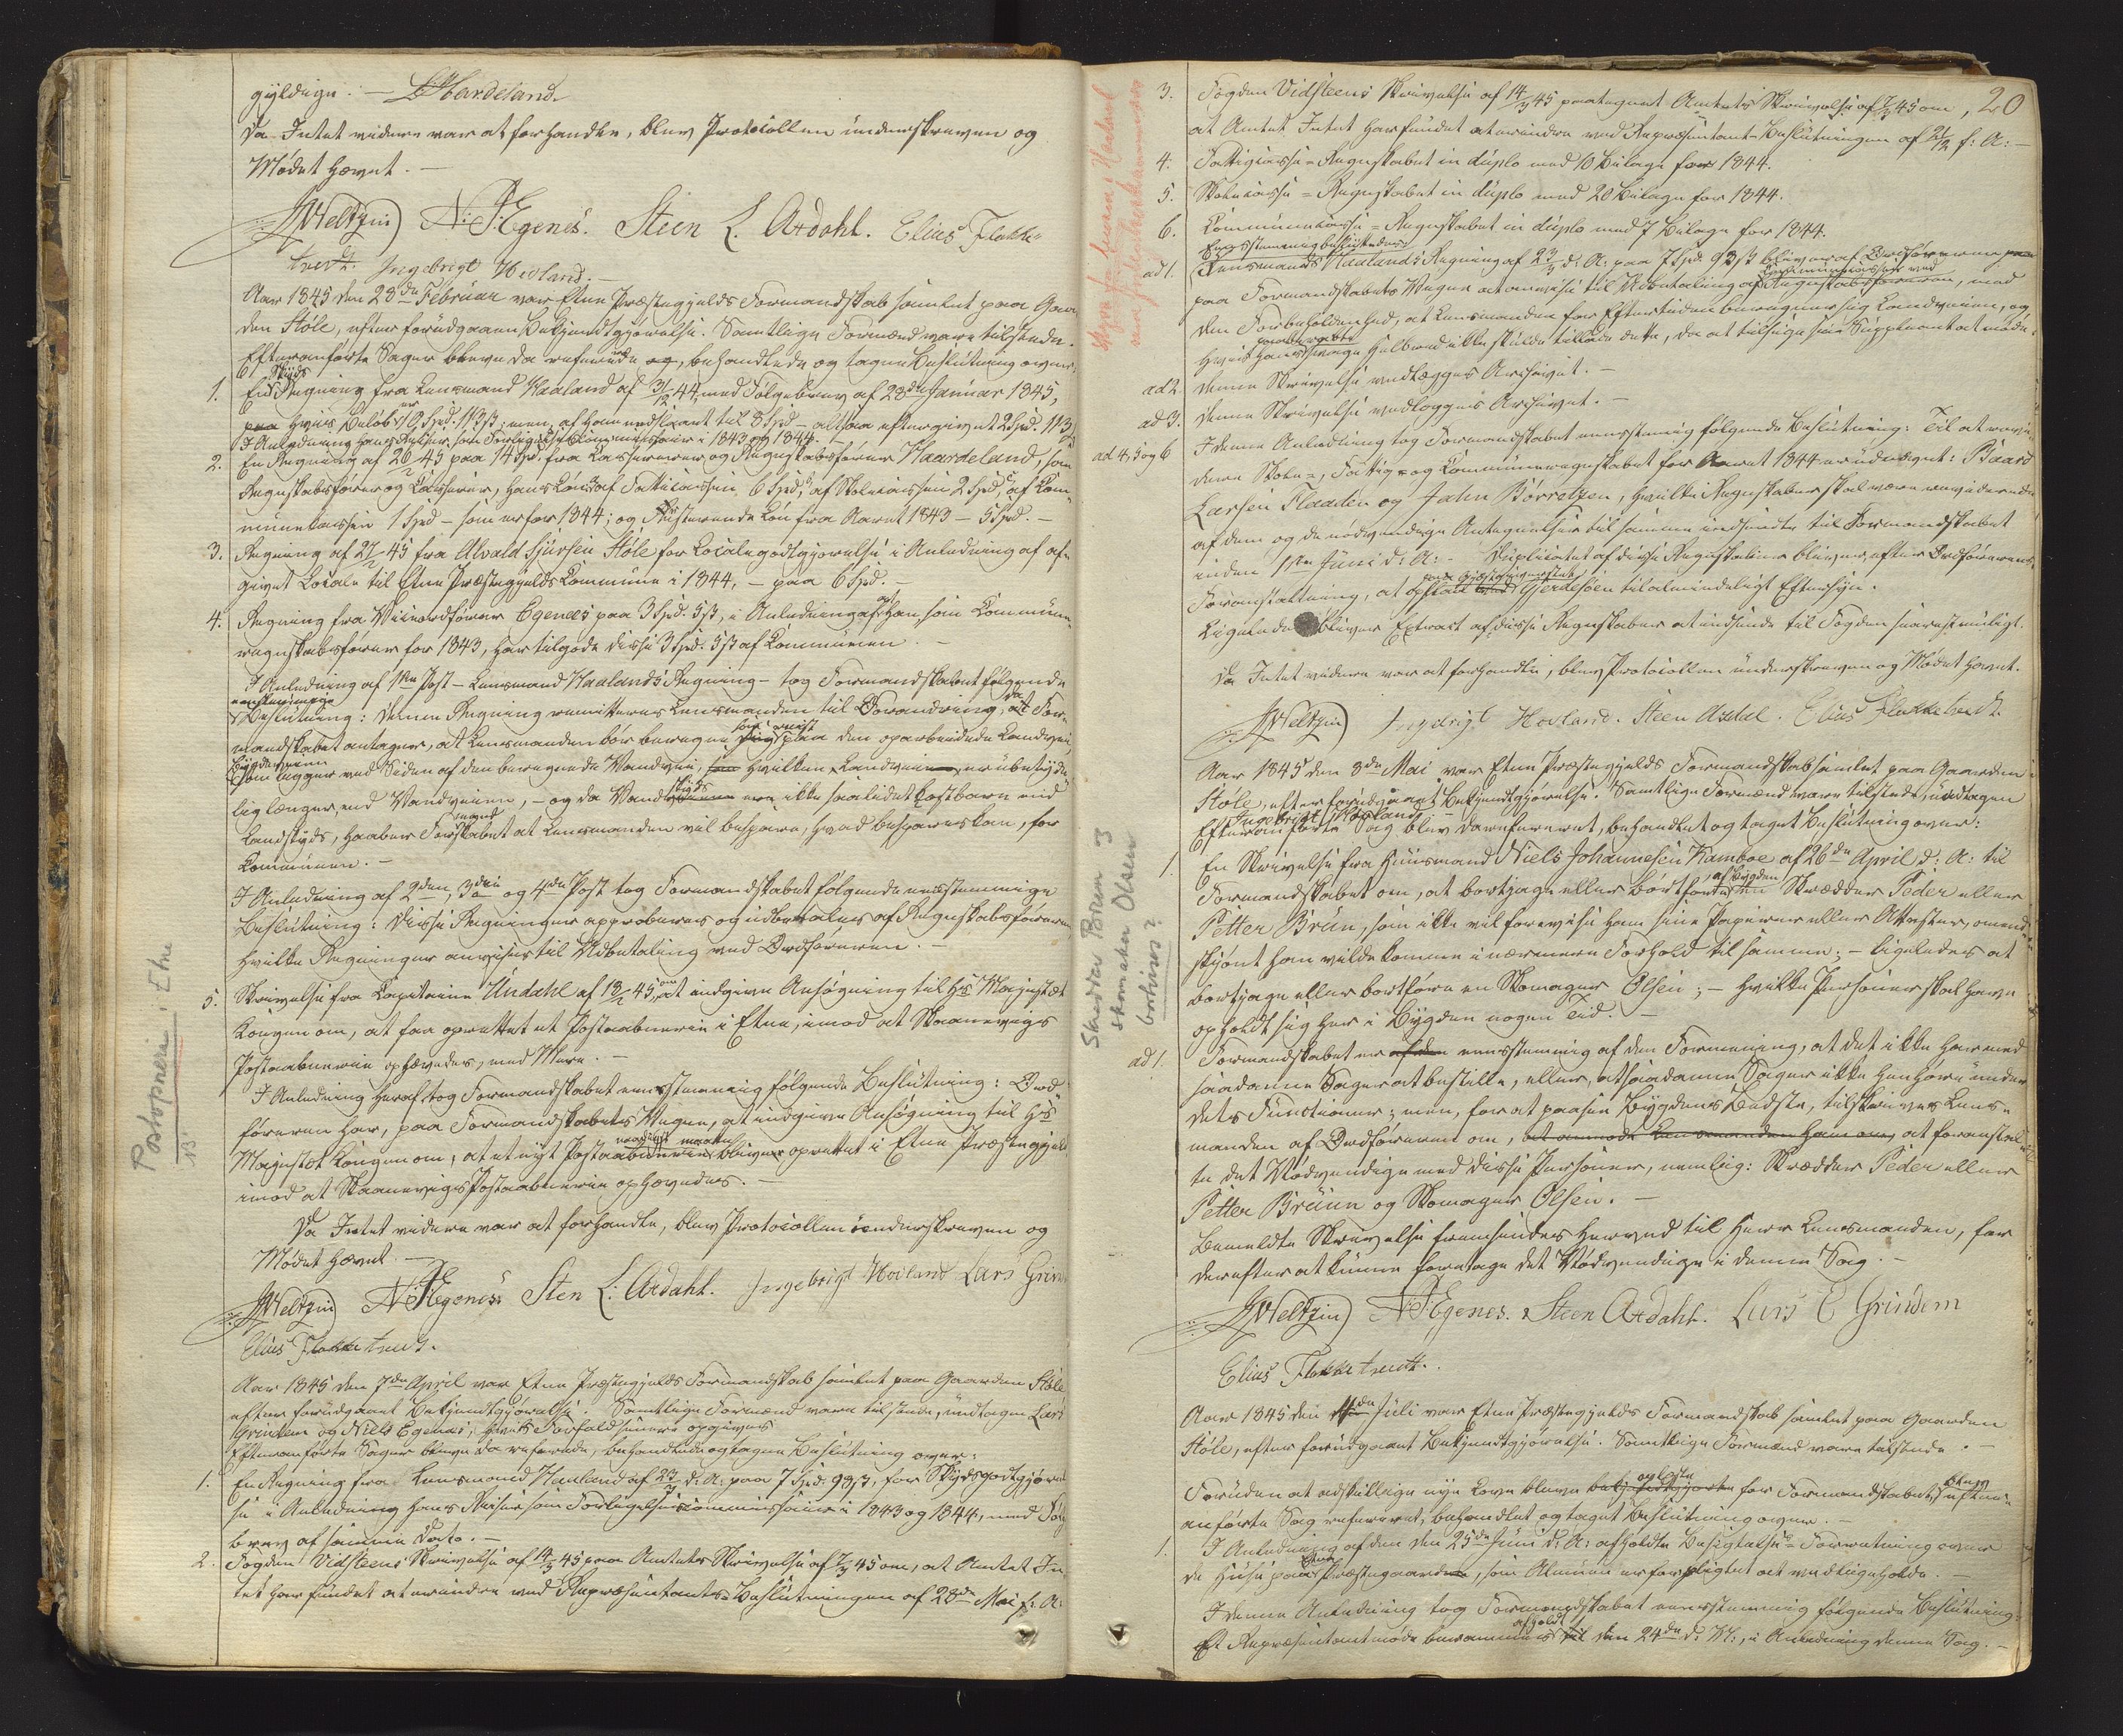 gyldige. – L Hardeland
Da Intet videre var at forhandle, blev Protocollen underskreven og
Mødet hævet. –
JWeltzin) N: T: Egenes. Steen L. Ardahl. Elias Flokke-
tvedt. Ingebrigt Hovland. –
Aar 1845 den 28de Februar var Etne Præstegjelds Formandskab samlet paa Gaar-
den Støle, efter forudgaaen Bekjendtgjørelse. Samtlige Formænd vare tilstede.
Efteranførte Sager bleve da refererede og, behandlede og tagen Beslutning over:
1. En Skyds Regning fra Lensmand Haaland af 31/12 44, med Følgebrev af 28de Januar 1845,
paa hvis Beløb er 9 Spd. 113 ß; men, af ham nedslaaet til 8 Spd – altsaa eftergivet 2 Spd. 113
I Anledning hans Reiser, som Forligelsescommissair i 1843 og 1844. –
2. En Regning af 26/2 45 paa 14 Spd. fra Kasserer og Regnskabsfører Haardeland, som
Regnskabsfører og Kasserer, hans Løn af Fattigcassen 6 Spd, af Skolecassen 2 Spd, af Com-
munecassen 1 Spd – som er for 1844; og Resterende Løn fra Aaret 1843 – 5 Spd. –
3. Regning af 27/2 45 fra Elvald Sjursen Støle for Localegodtgjørelse i Anledning af af-
givet Locale til Etne Præstegjelds Commune i 1844, – paa 6 Spd. –
4. Regning fra Viceordfører Egenæs paa 3 Spd. 5 ß, i Anledning af at han, som Commune-
regnskabsfører for 1843, har tilgode disse 3 Spd. 5 ß af Communen. –
I Anledning af 1ste Post – Lensmand Haalands Regning – tog Formandskabet følgende
eenstemmige
Beslutning: Denne Regning remitteres Lensmanden til Forandring, da at For-
mandskabet antager, at Lensmanden bør beregne sin Reise paa den oparbeidede Landvei,
Bygdeveien
som ligger ved Siden af den beregnede Vandvei, som hvilken Landvei er ubetyde-
lig længer, end Vandveien, – og da Vandskyds ere ikke saalidet kostbare end
Landskyds, haaber Formandskabet at Lensmanden vil bespare, hvad bespares kan, for
Communen. –
I Anledning af 2den, 3die og 4de Post tog Formandskabet følgende eenstemmige
Beslutning: Disse Regninger approberes og udbetales af Regnskabsføreren
hvilke Regninger anvises til Udbetaling ved Ordføreren. –
5. Skrivelse fra Capitaine Undahl af 18/2 45, om at indgive Ansøgning til Hs Majestæt
Kongen om, at faa oprettet et Postaabnerie i Etne, imod at Skaanevigs
Postaabnerie ophævedes, med Mere. –
I Anledning heraf tog Formandskabet eenstemmig følgende Beslutning: Ord-
føreren har, paa Formandskabets Vegne, at indgive Ansøgning til Hs
Majestæt Kongen om, at et nyt Postaabnerie maatte blive oprettet i Etne Præstegjeld
imod at Skaanevigs Postaabnerie ophævedes. –
Da Intet videre var at forhandle, blev Protocollen underskreven og
Mødet hævet. –
JWeltzin) N T Egenes. Sten L. Ardahl. Ingebrigt Hovland Lars Grin
Elias Flokketvedt.
Aar 1845 den 7de April var Etne Præstegjelds Formandskab samlet paa Gaarden Støle
efter forudgaaet Bekjendtgjørelse. Samtlige Formænd vare tilstede, undtagen Lars
Grindem og Niels Egenæs, hvis Forfald senere opgives
Efteranførte Sager bleve da refererede, behandlede og tagen Beslutning over:
1. En Regning fra Lensmand Haaland af 23/3 d. A: paa 7 Spd. 93 ß, for Skydsgodtgjørel-
se i Anledning hans Reiser som Forligelsescommissair i 1843 og 1844, med Følge-
brev af samme Dato. –
2. Fogden Vidsteens Skrivelse af 14/3 45 paa Amtets Skrivelse af 7/3 45 om, at Amtet In-
tet har fundet at erindre ved Repræsentants-Beslutningen af 28de Mai f: A:
Postopneri i Etne
20
3. Fogden Vidsteens Skrivelse af 14/3 45 paategnet Amtets Skrivelse af 7/3 45 om,
at Amtet Intet har fundet at erindre ved Repræsentant-Beslutningen af 21/2 f: A: –
4. Fattigcasse-Regnskabet in duplo med 10 Bilage for 1844.
5. Skolecasse-Regnskabet in duplo med 20 Bilage for 1844.
6. Communecasse-Regnskabet in duplo med 7 Bilage for 1844.
Eenstemmig besluttedes:
ad 1. Lensmands Haalands Regning af 23/3 d: A: paa 7 Spd. 93 ß bliver af Ordføreren
paa Formandskabets Vegne at anvise til Udbetaling af Communecassen ved Regnskabsføreren, med
den Forbeholdenhed, at Lensmanden for Eftertiden beregner sig Landveien, og
hvis hans paaberaabte svage Helbred ikke skulde tillade dette, da at tilsige sin Suppleant at møde.
ad 2. Denne Skrivelse vedlægges Archivet. –
ad 3. Denne Skrivelse vedlægges Archivet. –
ad 4, 5 og 6 I denne Anledning tog Formandskabet eenstemmig følgende Beslutning: Til at revi-
dere Skole-, Fattig- og Communeregnskabet for Aaret 1844 er udnævnt: Baard
Larsen Flaaden og Jahn Børretzen, hvilke Regnskaber skal være reviderede
af dem og de nødvendige Antegnelser til samme indsendte til Formandskabet
inden 1ste Juni d: A: – Duplicatet af disse Regnskaber bliver, efter Ordførerens
Foranstaltning, at opslaae paa Gjæstgiverstedet Gjerdesøen til almindeligt Eftersyn.
Ligeledes bliver Extract af disse Regnskaber at indsende til Fogden snarest muligt.
Da Intet videre var at forhandle, blev Protocollen underskreven og Mødet hævet.
JWeltzin) Ingebrigt Hovland. Steen Ardal. Elias Flokketvedt.
Aar 1845 den 8de Mai var Etne Præstegjelds Formandskab samlet paa Gaarden
Støle, efter forudgaaet Bekjendtgjørelse. Samtlige Formænd vare tilstede, undtagen
Ingebrigt Hovland. –
Efteranførte Sag blev da refereret, behandlet og taget Beslutning over:
1. En Skrivelse fra Huusmand Niels Johannesen Kamboe af 26de April d: A: til
Formandskabet om, at bortjage eller bortføre af Bygden en Skrædder Peder eller
Petter Brun, som ikke vil forevise ham sine Papirer eller Attester, omend-
skjønt han vilde komme i nærmere Forhold til samme; – ligeledes at
bortjage eller bortføre en Skomager Olsen; – hvilke Personer skal have
opholdt sig her i Bygden nogen Tid. –
ad 1. Formandskabet er af den eenstemmig af den Formening, at det ikke har med
saadanne Sager at bestille, eller, at saadanne Sager ikke henhøre under
dets Functioner; men, for at paasee Bygdens Bedste, tilskrives Lens-
manden af Ordføreren om, at anmode Lensmanden ham om, at foranstal-
te det Nødvendige med disse Personer, nemlig: Skrædder Peder eller
Petter Bruun og Skomager Olsen. –
Bemeldte Skrivelse fremsendes herved til Herr Lensmanden, for
derefter at kunne foretage det Nødvendige i denne Sag. –
JWeltzin) N T Egenes. Steen Ardahl. Lars E Grindem
Elias Flokketvedt.
Aar 1845 den de Juli var Etne Præstegjelds Formandskab samlet paa Gaarden
Støle, efter forudgaaet Bekjendtgjørelse. Samtlige Formænd vare tilstede. –
Foruden at adskillige nye Love bleve bekjendtgjorte oplæste for Formandskabet, blev efter-
anførte Sag refereret, behandlet og taget Beslutning over. –
1. I Anledning af den den 25de Juni d: A: afholdte Besigtelses-Forretning over
de Huse paa Etne Præstegaard, som Almuen er forpligtet at vedligeholde. –
I denne Anledning tog Formandskabet eenstemmig følgende Beslutning:
Et Repræsentantmøde berammes afholdt til den 24de d: M:, i Anledning denne Sag. –
Skrædder Brun 3
skomaker Olsen
bortvises?